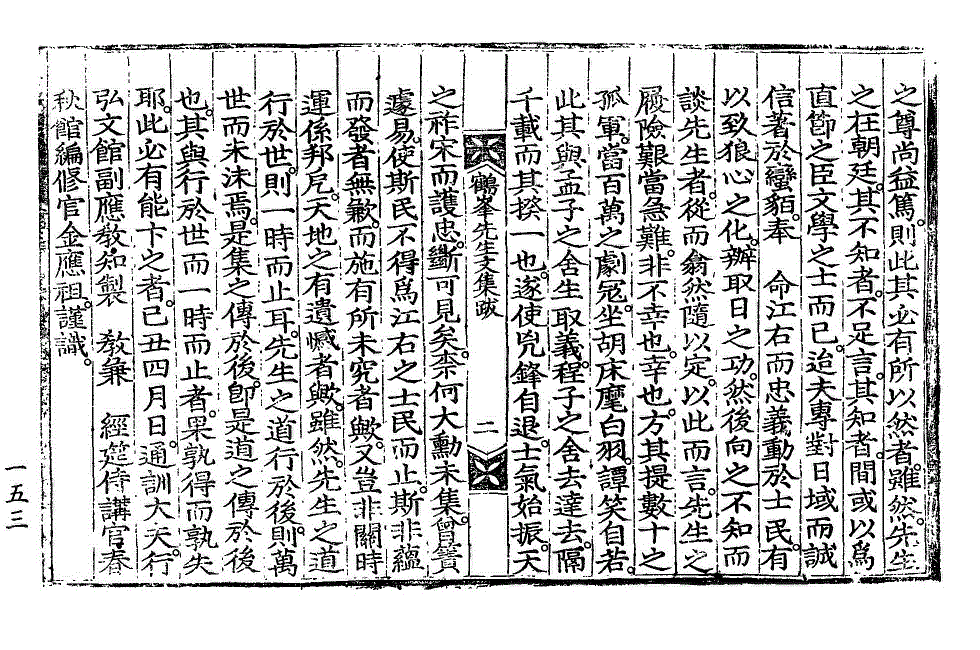 之尊尚益篤。則此其必有所以然者。雖然。先生
之在朝廷。其不知者。不足言。其知者。間或以爲
直節之臣文學之士而已。迨夫專對日域而誠
信著於蠻貊。奉 命江右而忠義動於士民。有
以致狼心之化。辦取日之功。然後向之不知而
談先生者。從而翕然隨以定。以此而言。先生之
履險艱當急難。非不幸也。幸也。方其提數十之
孤軍。當百萬之劇寇。坐胡床麾白羽。譚笑自若。
此其與孟子之舍生取義。程子之舍去達去。隔
千載而其揆一也。遂使兇鋒自退。士氣始振。天
鶴峯先生文集跋 二
之祚宋而護忠。斷可見矣。柰何大勳未集。曾簀
遽易。使斯民不得爲江右之士民而止。斯非蘊
而發者無歉。而施有所未究者歟。又豈非關時
運係邦戹。天地之有遺憾者歟。雖然。先生之道
行於世。則一時而止耳。先生之道行於後。則萬
世而未沫焉。是集之傳於後。卽是道之傳於後
也。其與行於世而一時而止者。果孰得而孰失
耶。此必有能卞之者。已丑四月日。通訓大夫。行
弘文館副應敎知製 敎兼 經筵侍講官春
秋館編修官金應祖。謹識。
一五三